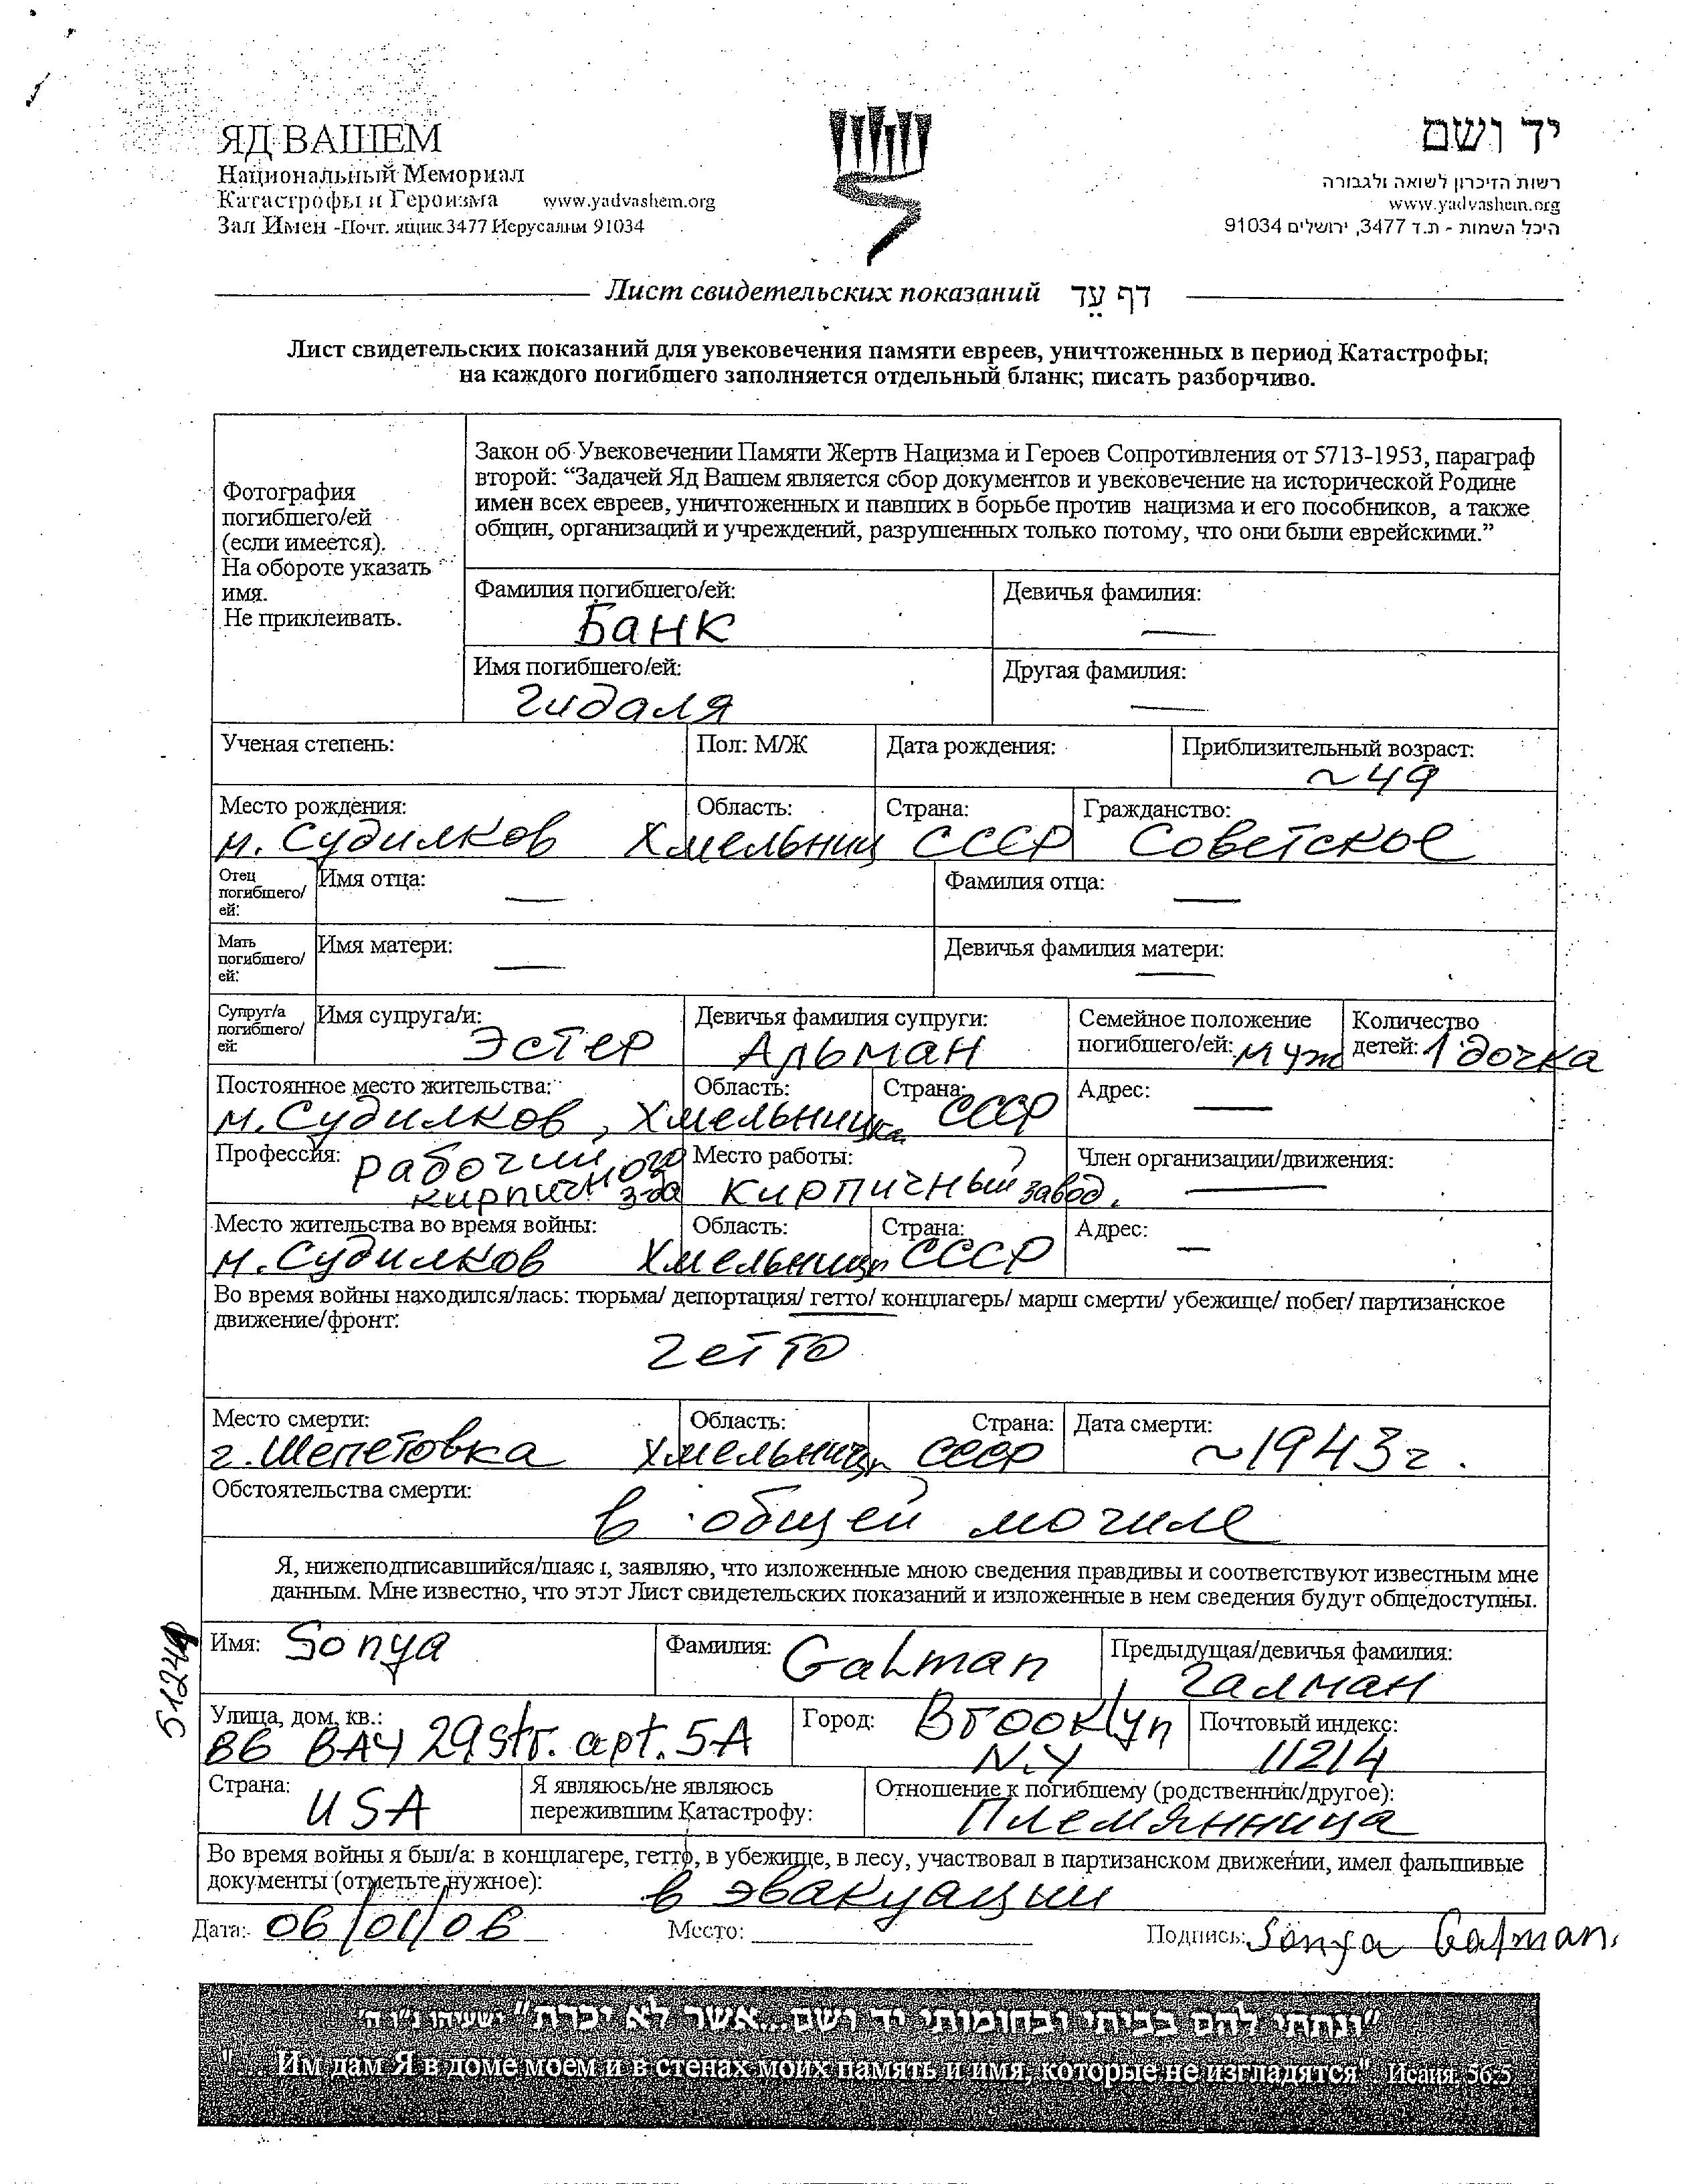 ЯД ВАШЕМ
Национальный Мемориал
Катастрофы и Героизма www.yadvashem.org
Зал Имен -Почт. ящик 3477 Иерусалим 91034
יד ושם
רשות הזיכרון לשואה ולגבורה
www.yadvashem.org
היכל השמות - ת.ד 3477, ירושלים 91034
Лист свидетельских показаний דף עֵד
Лист свидетельских показаний для увековечения памяти евреев, уничтоженных в период Катастрофы;
на каждого погибшего заполняется отдельный бланк; писать разборчиво.
Фотография
погибшего/ей
(если имеется).
На обороте указать
имя.
Не приклеивать.
Закон об Увековечении Памяти Жертв Нацизма и Героев Сопротивления от 5713-1953, параграф
второй: “Задачей Яд Вашем является сбор документов и увековечение на исторической Родине
имен всех евреев, уничтоженных и павших в борьбе против нацизма и его пособников, а также
общин, организаций и учреждений, разрушенных только потому, что они были еврейскими.”
Фамилия погибшего/ей: Девичья фамилия:
Банк —
Имя погибшего/ей: Другая фамилия:
Гидаля —
Ученая степень: Пол: М/Ж Дата рождения: Приблизительный возраст:
~49
Место рождения: Область: Страна: Гражданство:
м. Судилков Хмельниц СССР Советское
Отец
погибшего/
ей:
Имя отца: — Фамилия отца: —
Мать
погибшего/
ей:
Имя матери: — Девичья фамилия матери: —
Супруг/а
погибшего/
ей:
Имя супруга/и: Девичья фамилия супруги: Семейное положение Количество
погибшего/ей: муж детей: 1 дочка
Эстер Альман
Постоянное место жительства: Область: Страна: Адрес: —
м. Судилков, Хмельницка СССР
Профессия: рабочий Место работы: Член организации/движения: —
кирпичного з-да кирпичный завод.
Место жительства во время войны: Область: Страна: Адрес: —
м. Судилков Хмельниц СССР
Во время войны находился/лась: тюрьма/ депортация/ гетто/ концлагерь/ марш смерти/ убежище/ побег/ партизанское
движение/фронт:
гетто
Место смерти: Область: Страна: Дата смерти:
г. Шепетовка Хмельниц СССР ~1943г.
Обстоятельства смерти:
в общей могиле
Я, нижеподписавшийся/шаяся, заявляю, что изложенные мною сведения правдивы и соответствуют известным мне
данным. Мне известно, что этот Лист свидетельских показаний и изложенные в нем сведения будут общедоступны.
Имя: Sonya Фамилия: Galman Предыдущая/девичья фамилия:
Галман
Улица, дом, кв.: Город: Brooklyn Почтовый индекс:
86 BAY 29 str. apt. 5A N.Y 11214
Страна: USA Я являюсь/не являюсь
пережившим Катастрофу:
Отношение к погибшему (родственник/другое):
Племянница
Во время войны я был/а: в концлагере, гетто, в убежище, в лесу, участвовал в партизанском движении, имел фальшивые
документы (отметьте нужное): в эвакуации
Дата: 06/01/06 Место: Подпись: Sonya Galman.
"ונתתי להם בביתי ובחומותי יד ושם...אשר לא יכרת" ישעיהו נ"ו ה'
"... Им дам Я в доме моем и в стенах моих память и имя, которые не изгладятся" Исаия 56:5